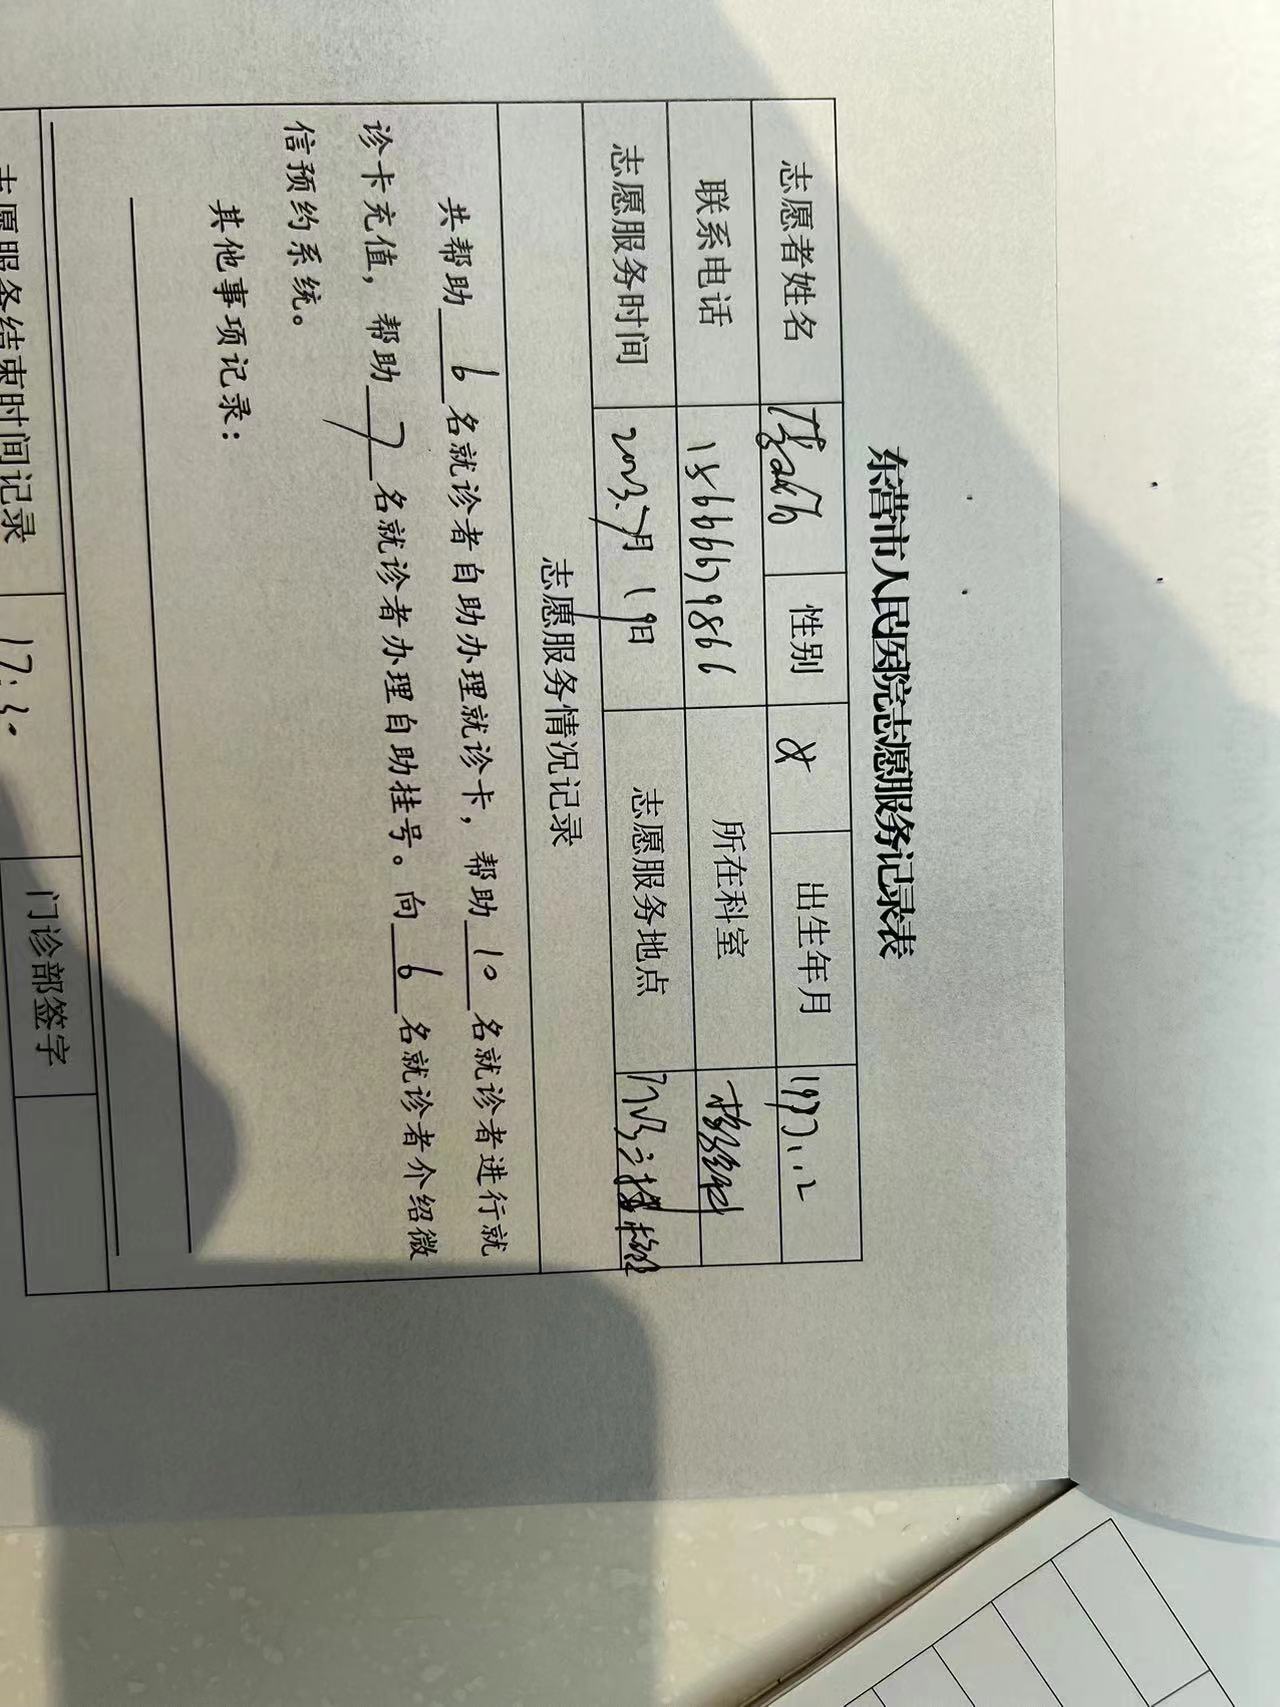 东营市人民医院志愿服务记录表
志愿者姓名 性别 女 出生年月
联系电话 15666679866 所在科室 检验科
志愿服务时间 2023.7月19日 志愿服务地点
志愿服务情况记录
共帮助 6 名就诊者自助办理就诊卡，帮助 10 名就诊者进行就
诊卡充值，帮助 7 名就诊者办理自助挂号。向 6 名就诊者介绍微
信预约系统。
其他事项记录：
志愿服务结束时间记录 17:30 门诊部签字